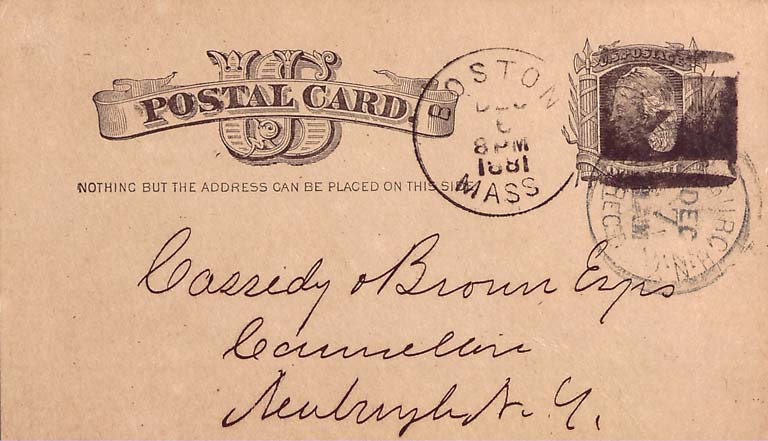 US
POSTAL CARD.
NOTHING BUT THE ADDRESS CAN BE PLACED ON THIS SIDE.
BOSTON
DEC
6
8PM
1881
MASS
U.S. POSTAGE
DEC
7
AM
REC'D
Cassedy & Brown Esqs
Counsellors
Newburgh N. Y.